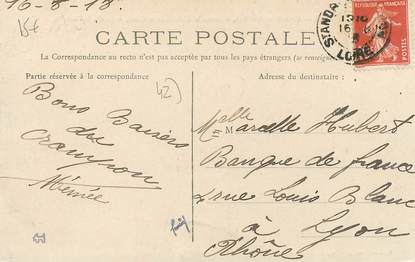 16-8-18
CARTE POSTALE
La Correspondance au recto n'est pas acceptée par tous les pays étrangers (se renseigner
Partie réservée à la correspondance
Adresse du destinataire :
REPUBLIQUE FRANÇAISE
POSTES
LOIRE
42)
Bons Baisers
du
Crampon
Mémée
Melle
M Marcelle Hubert
Banque de france
4 rue Louis Blanc
à Lyon
Rhône